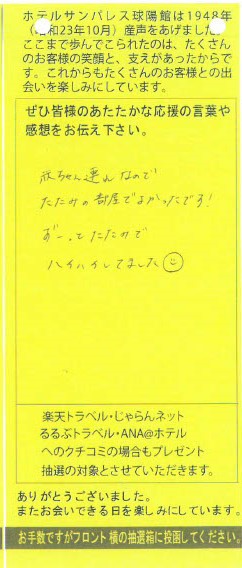 ホテルサンパレス球陽館は1948年
（昭和23年10月）産声をあげました。
ここまで歩んでこられたのは、たくさん
のお客様の笑顔と、支えがあったからで
す。これからもたくさんのお客様との出
会いを楽しみにしています。
ぜひ皆様のあたたかな応援の言葉や
感想をお伝え下さい。
赤ちゃん連れなので
たたみの部屋でよかったです！
ずーってたたみで
ハイハイしてました
楽天トラベル・じゃらんネット
るるぶトラベル・ANA@ホテル
へのクチコミの場合もプレゼント
抽選の対象とさせていただきます。
ありがとうございました。
またお会いできる日を楽しみにしています。
お手数ですがフロント横の抽選箱に投函してください。